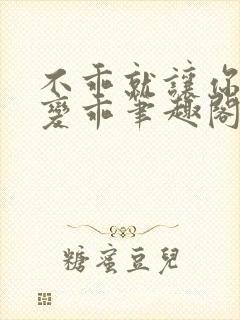 不乖就讓你
變乖筆趣閣
糖蜜豆兒